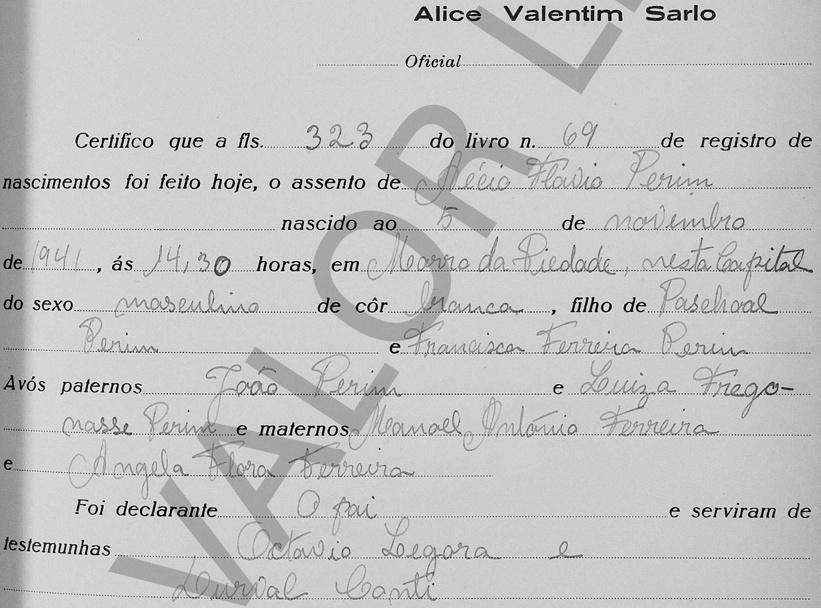 Alice Valentim Sarlo
Oficial
Certifico que a fls. 323 do livro n. 69 de registro de
nascimentos foi feito hoje, o assento de Aécio Flavio Perim
nascido ao 5 de novembro
de 1941, ás 14,30 horas, em Morro da Piedade, nesta Capital
do sexo masculino de côr branca, filho de Paschoal
Perim e Francisca Ferreira Perim
Avós paternos João Perim e Luiza Frego-
nasse Perim e maternos Manoel Antônio Ferreira
e Angela Flora Ferreira
Foi declarante O pai e serviram de
testemunhas Octavio Legora e
Durval Conti
VALOR